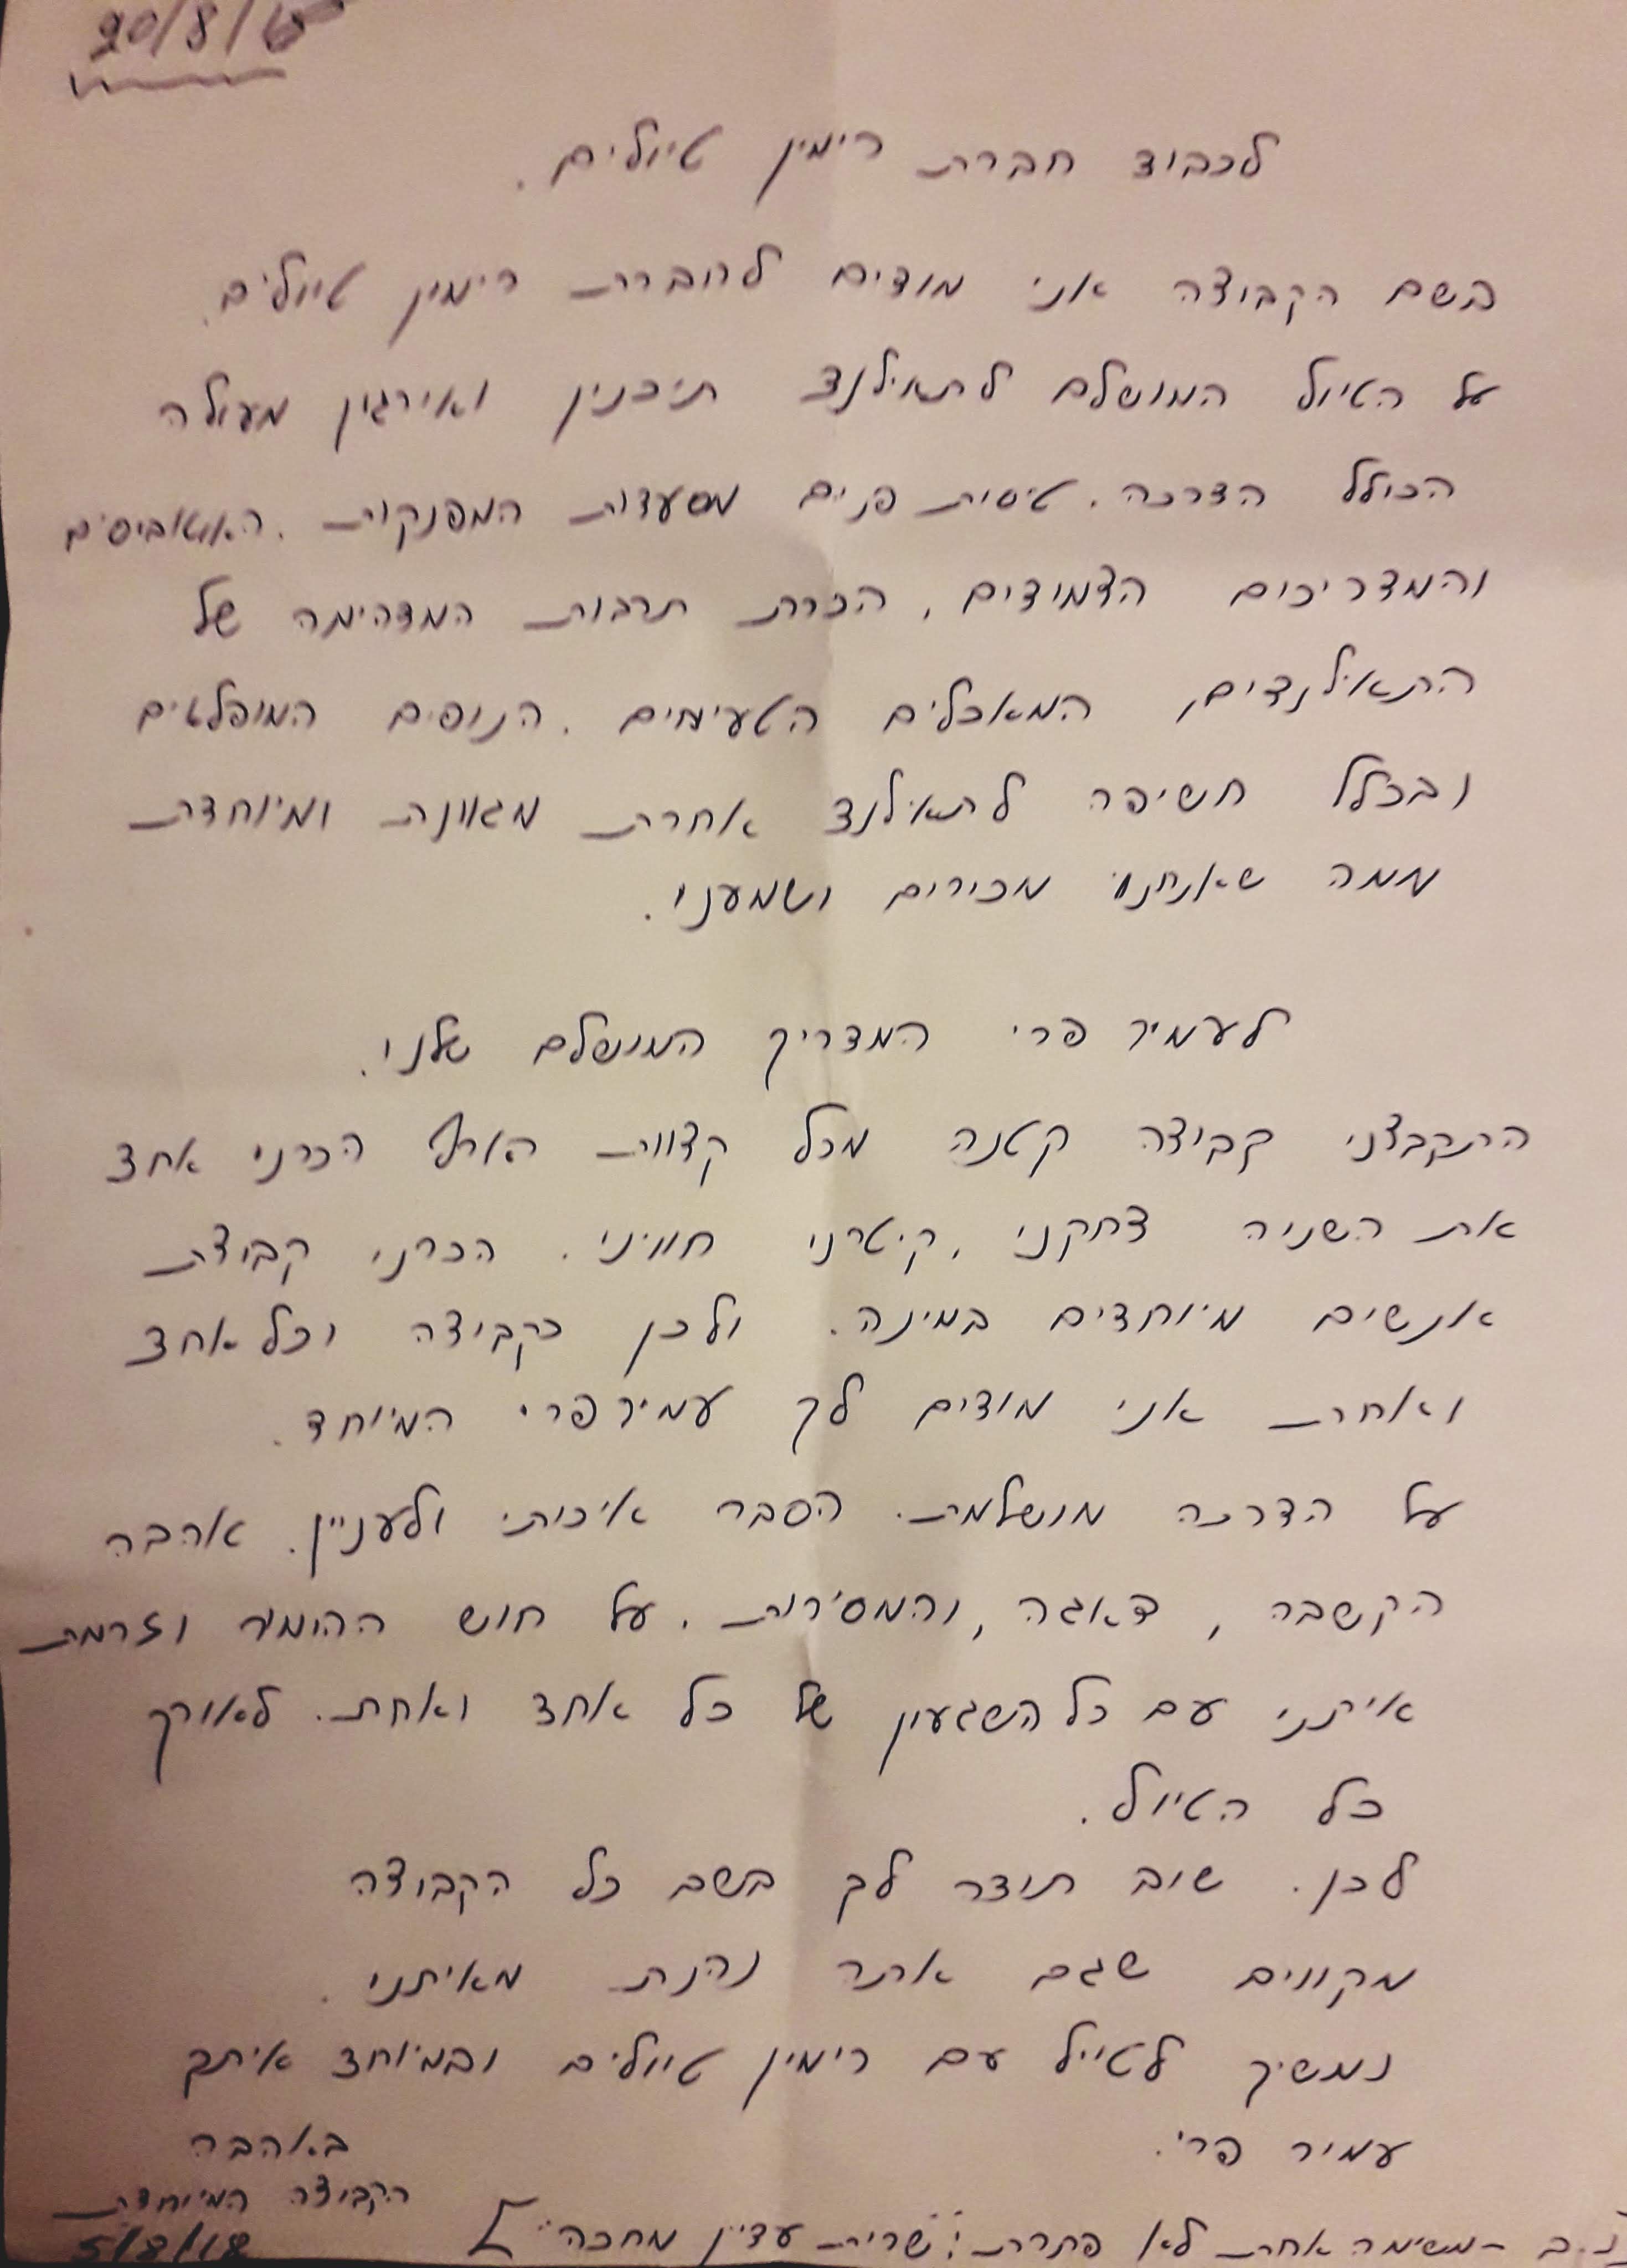 20/8/18
לכבוד חברת רימין טיולים.
בשם הקבוצה אני מודים לחברת רימין טיולים.
על הטיול המושלם לתאילנד תיכנין ואירגון מעולה
הכולל הדרכה. טיסית פנים מסעדות המפנקות. האוטוביסים
והמדריכים הצמידים, הכרת תרבות המדהימה של
התאילנדים, המאכלים הטעימים. הנופים המופלאים
ובכלל חשיפה לתאילנד אחרת מגוונת ומיוחדת
ממה שאנחנו מכירים ושמענו.
לעמיר פרי המדריך המושלם שלנו.
התקבצני קביצה קטנה מכל קצוות הארץ הכרני אחד
את השניה צחקני, קיטרני חוויני. הכרני קבוצת
אנשים מיוחדים במינה. ולכן כקביצה וכל אחד
ואחת אני מודים לך עמיר פרי המיוחד.
על הדרכה מושלמת. הסבר איכותי ולעניין. אהבה
הקשבה, דאגה, והמסירות. על חוש ההומור וזרמת
איתני עם כל השגעון של כל אחד ואחת. לאורך
כל הטיול.
לכן. שוב תודה לך בשם כל הקבוצה
מקווים שגם אתה נהנת מאיתני.
נמשיך לטייל עם רימין טיולים ובמיוחד איתך
עמיר פרי.
באהבה
הקבוצה המיוחדת
5/8/18
נ.ב - משימה אחת לא פתרת: "שרית עדיין מחכה"